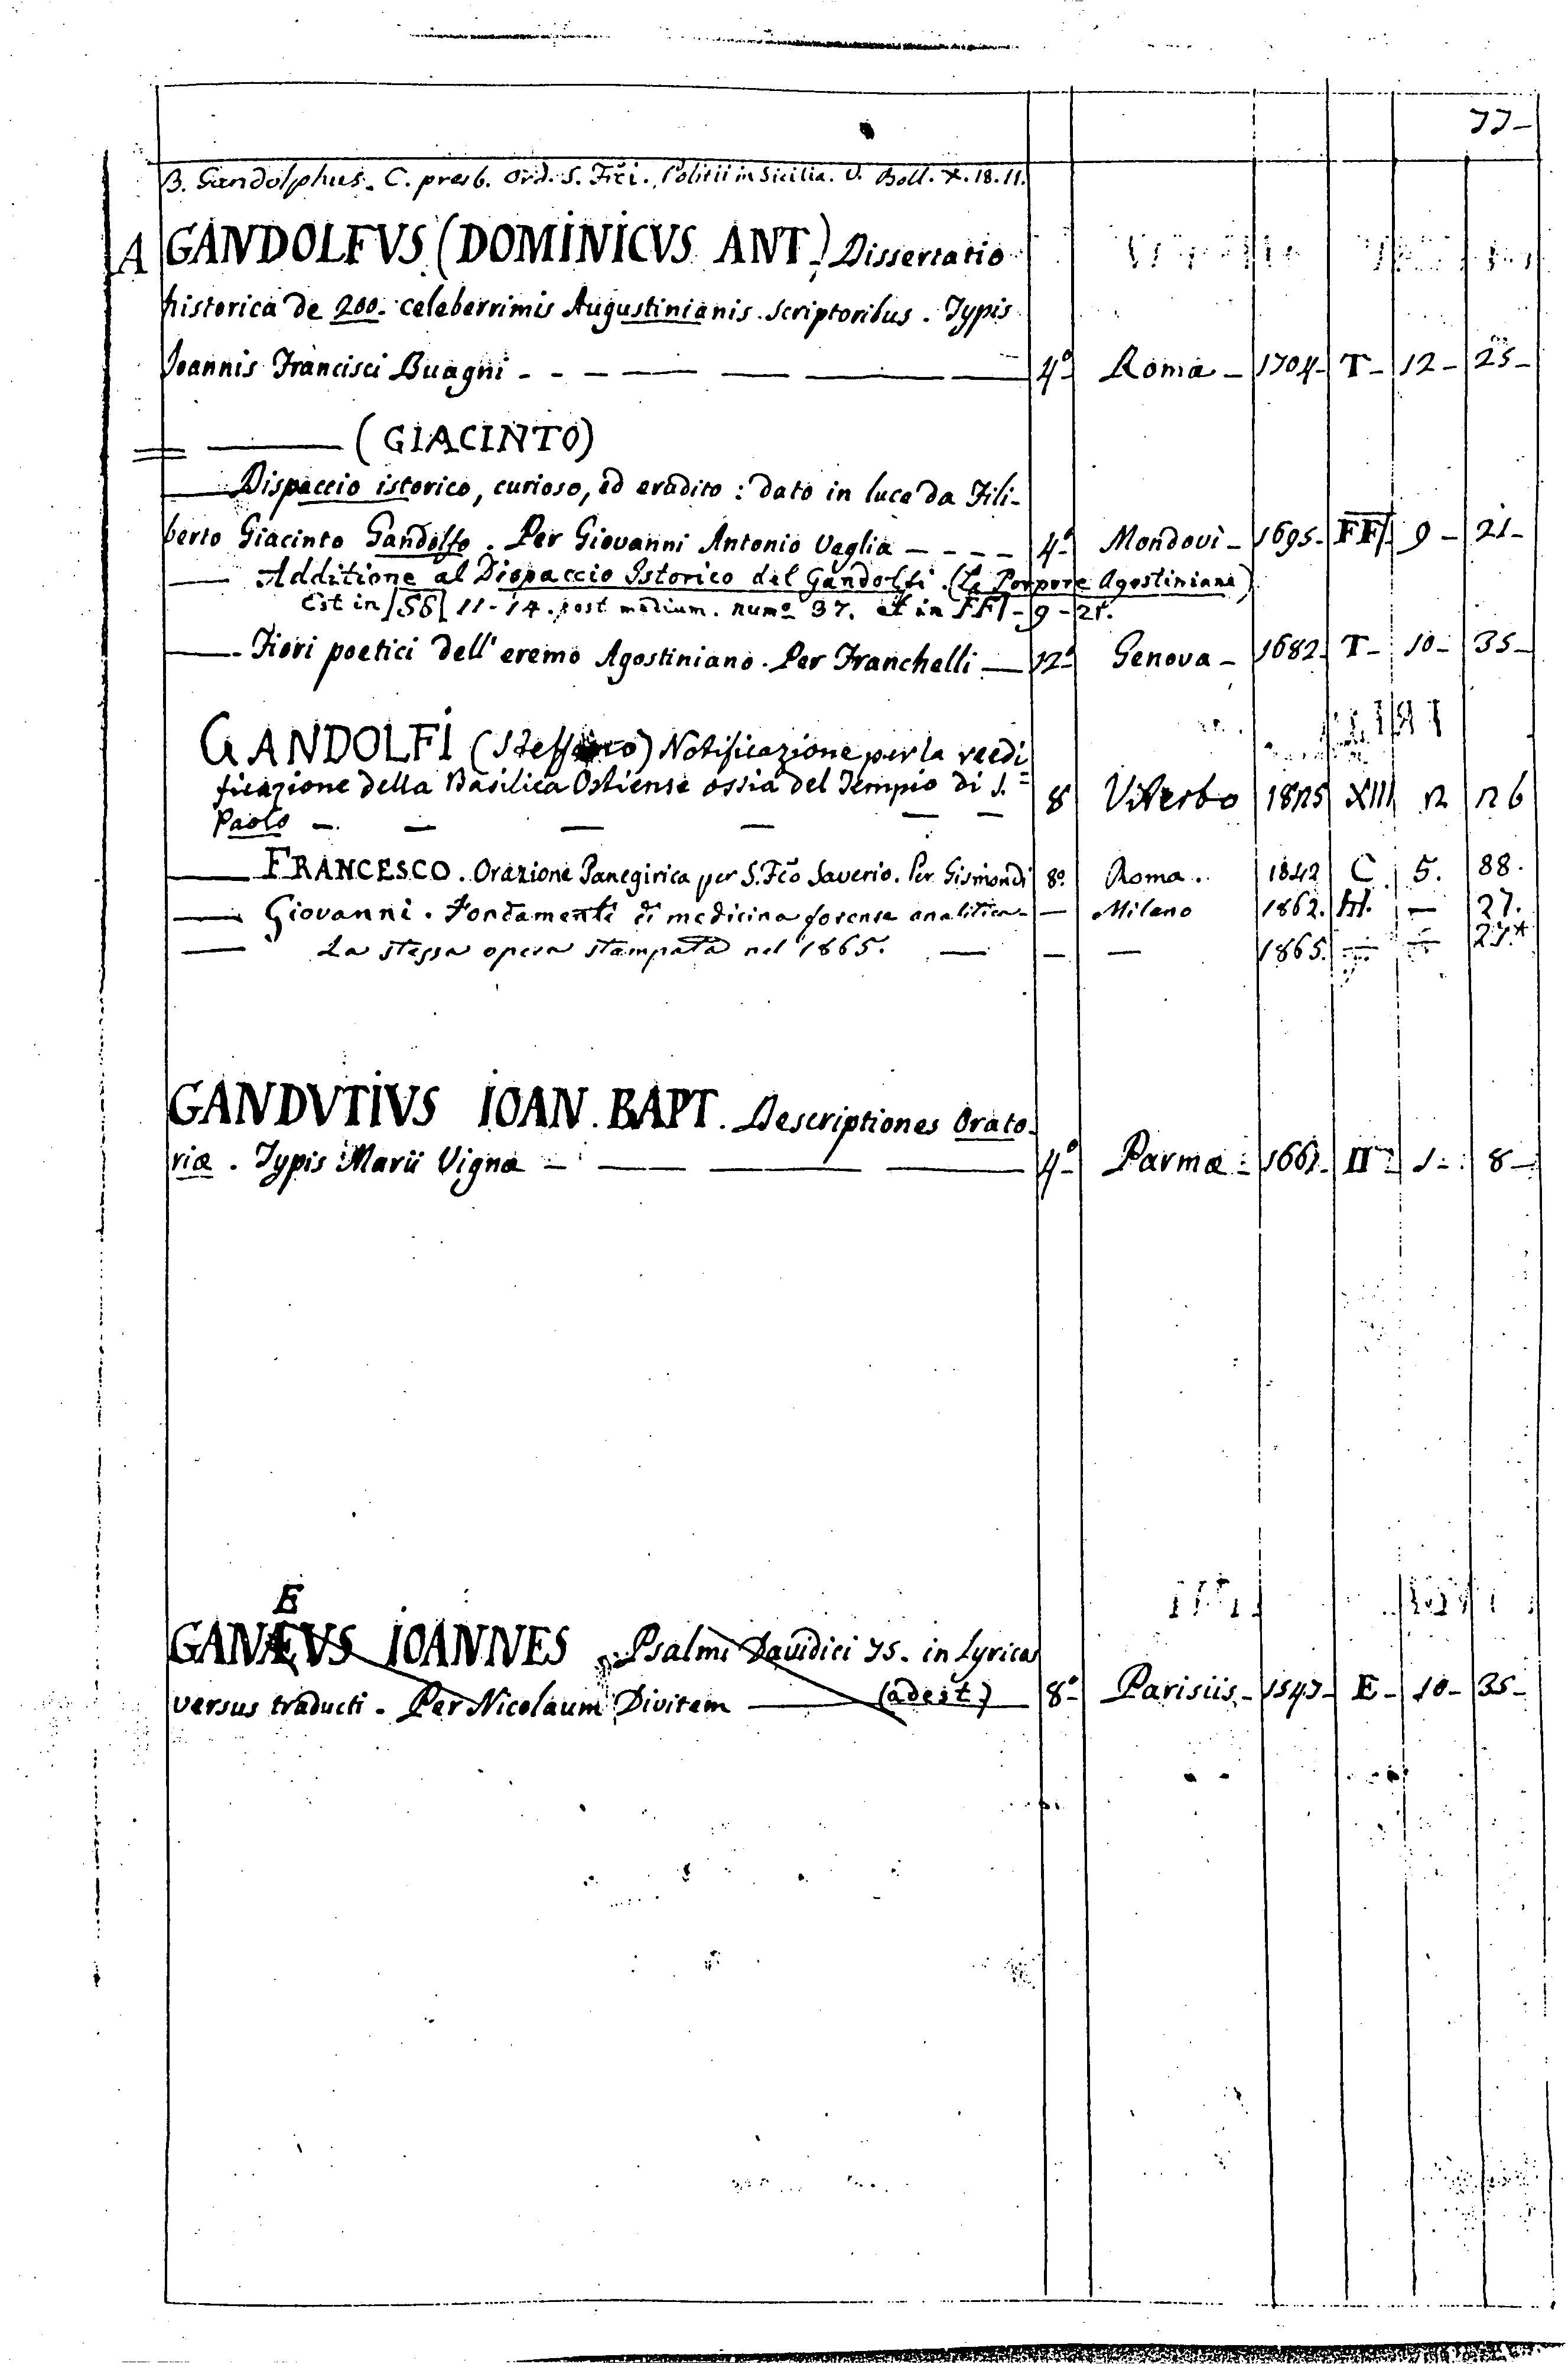 77-
B. Gandolphus. C. presb. Ord. S. Fr̃ci., Politii in Sicilia. V. Boll. X. 18. 11.
A GANDOLFVS (DOMINICVS ANT.) Dissertatio
historica de 200. celeberrimis Augustinianis Scriptoribus. Typis
Joannis Francisci Buagni - - - — — — — 4º Roma - 1704- T- 12- 25-
= —— (GIACINTO)
—— Dispaccio istorico, curioso, ed erudito: dato in luce da Fili-
berto Giacinto Gandolfo. Per Giovanni Antonio Vaglia - - - - 4º Mondovi- 1695- FF/- 9- 21-
—— Additione al Dispaccio Istorico del Gandolfi. (Le Porpore Agostiniane)
Est in /SS/ 11-14. post medium. numº 37. et in FF/-9-21.
——. Fiori poetici dell' eremo Agostiniano. Per Franchelli — 12º Genova- 1682- T- 10- 35-
GANDOLFI (Steffano) Notificazione per la reedi=
ficazione della Basilica Ostiense ossia del Tempio di S.
Paolo — — — — — — 8 Viterbo 1825 XIII 2 26
—— FRANCESCO. Orazione Panegirica per S. Fc̃o Saverio. Per Gismondi 8º Roma. 1842 C. 5. 88.
—— Giovanni. Fondamenti di medicina forense analitica - — Milano 1862. III. — 27.
—— La stessa opera stampata nel 1865. — — — 1865. — — 27.*
GANDVTIVS IOAN. BAPT. Descriptiones Orato-
riæ. Typis Marii Vignæ — — — — 4º Parmæ- 1661- II- 1- 8-
E
GANÆVS IOANNES. Psalmi Davidici 75. in Lyricos
versus traducti. Per Nicolaum Divitem —— (adest) — 8º Parisiis- 1547- E- 10- 35-